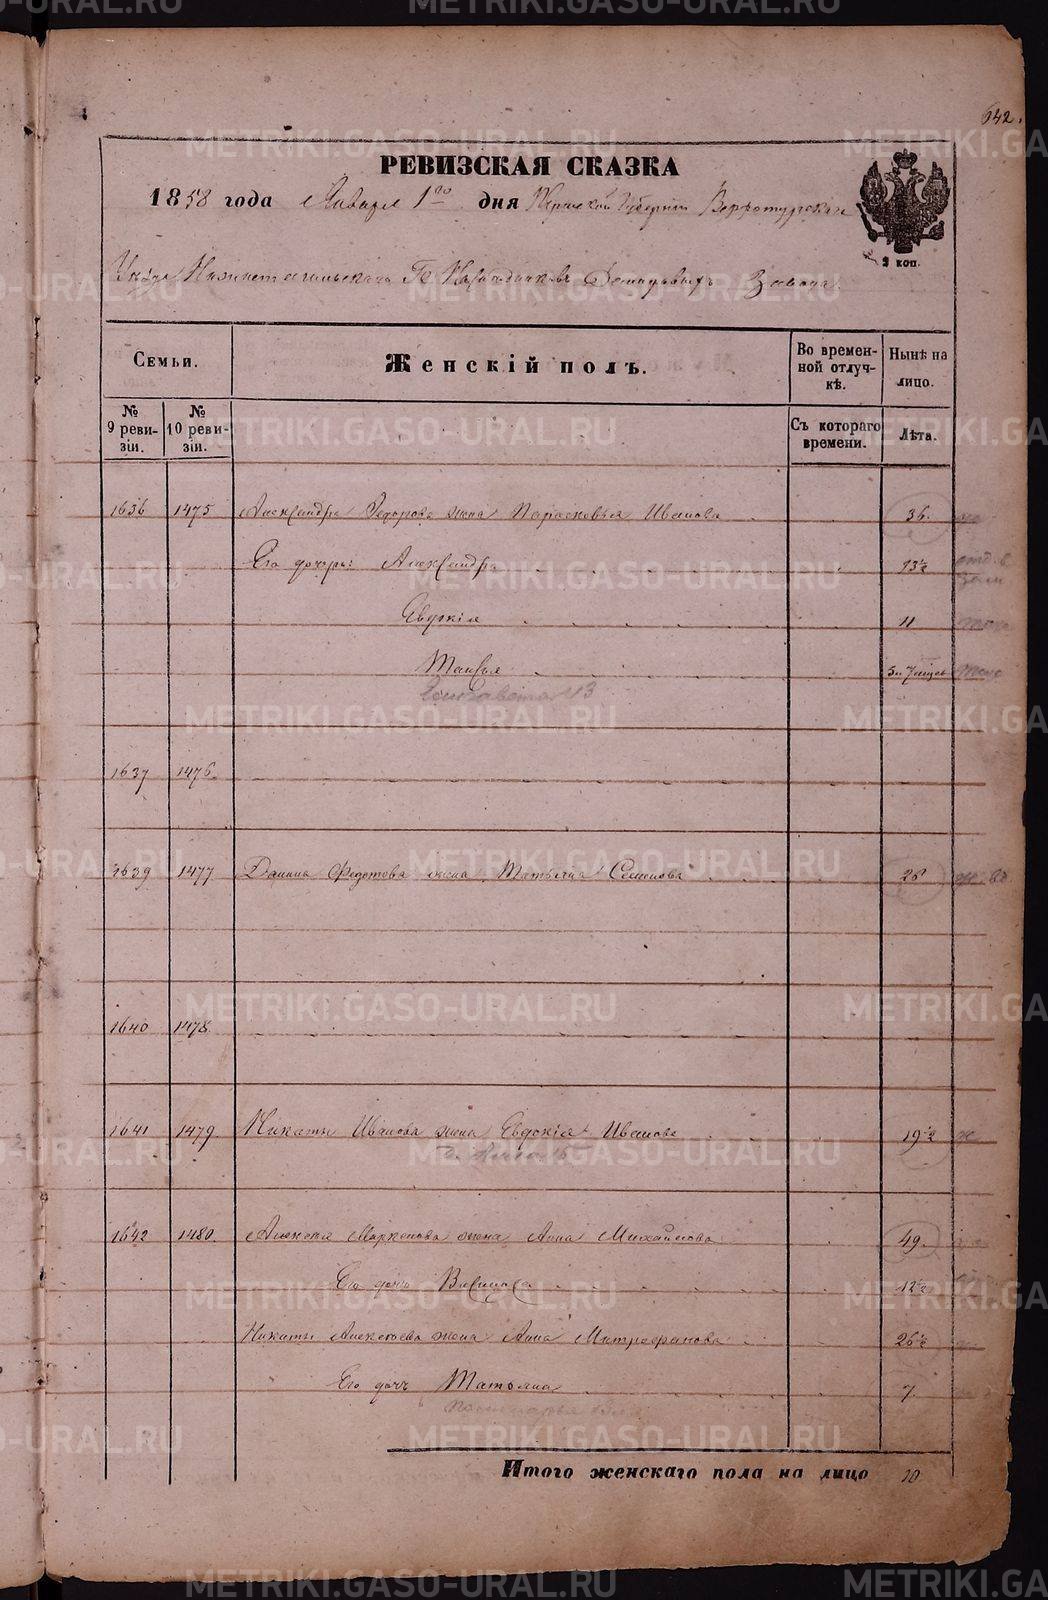 642.
РЕВИЗСКАЯ СКАЗКА
1858 года Января 1го дня Пермской Губернии Верхотурскаго
2 коп.
Уѣзда Нижнетагильскаго Гг. Наслѣдниковъ Демидовыхъ Завода.
Семьи.
Женскій полъ.
Во временной отлучкѣ.
Нынѣ на лицо.
№ 9 ревизіи.
№ 10 ревизіи.
Съ котораго времени.
Лѣта.
1636 1475 Александра Федорова жена Парасковья Иванова 36.
Его дочери: Александра 13½
Евдокія 11
Таисья 5 и 7 мѣсяц
Елисавета 13
1637 1476
1639 1477 Данила Федотова жена Татьяна Семенова 28
1640 1478
1641 1479 Никиты Иванова жена Евдокія Иванова 19½
1642 1480 Алексея жена Анна Михайлова 49.
Его дочь 12½
Никиты Алексѣева жена Анна Митрофанова 26½
Его дочь Татьяна 7.
Итого женскаго пола на лицо 10.
METRIKI.GASO-URAL.RU